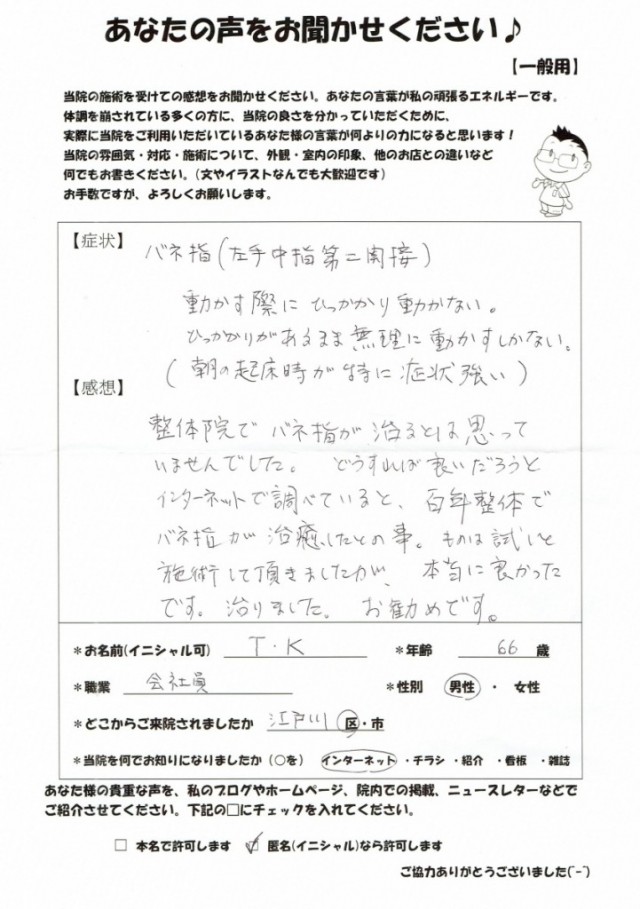 あなたの声をお聞かせください♪
【一般用】
当院の施術を受けての感想をお聞かせください。あなたの言葉が私の頑張るエネルギーです。
体調を崩されている多くの方に、当院の良さを分かっていただくために、
実際に当院をご利用いただいているあなた様の言葉が何よりの力になると思います！
当院の雰囲気・対応・施術について、外観・室内の印象、他のお店との違いなど
何でもお書きください。（文やイラストなんでも大歓迎です）
お手数ですが、よろしくお願いします。
【症状】
バネ指（左手中指第二関接）
動かす際にひっかかり動かない。
ひっかかりがあるまま無理に動かすしかない。
（朝の起床時が特に症状強い）
【感想】
整体院でバネ指が治るとは思って
いませんでした。どうすれば良いだろうと
インターネットで調べていると、百年整体で
バネ指が治癒したとの事。ものは試しと
施術して頂きましたが、本当に良かった
です。治りました。お勧めです。
＊お名前(イニシャル可) T・K ＊年齢 66 歳
＊職業 会社員 ＊性別 男性・女性
＊どこからご来院されましたか 江戸川 区・市
＊当院を何でお知りになりましたか（○を） インターネット・チラシ・紹介・看板・雑誌
あなた様の貴重な声を、私のブログやホームページ、院内での掲載、ニュースレターなどで
ご紹介させてください。下記の□にチェックを入れてください。
□ 本名で許可します ☑ 匿名(イニシャル)なら許可します
ご協力ありがとうございました(^-^)